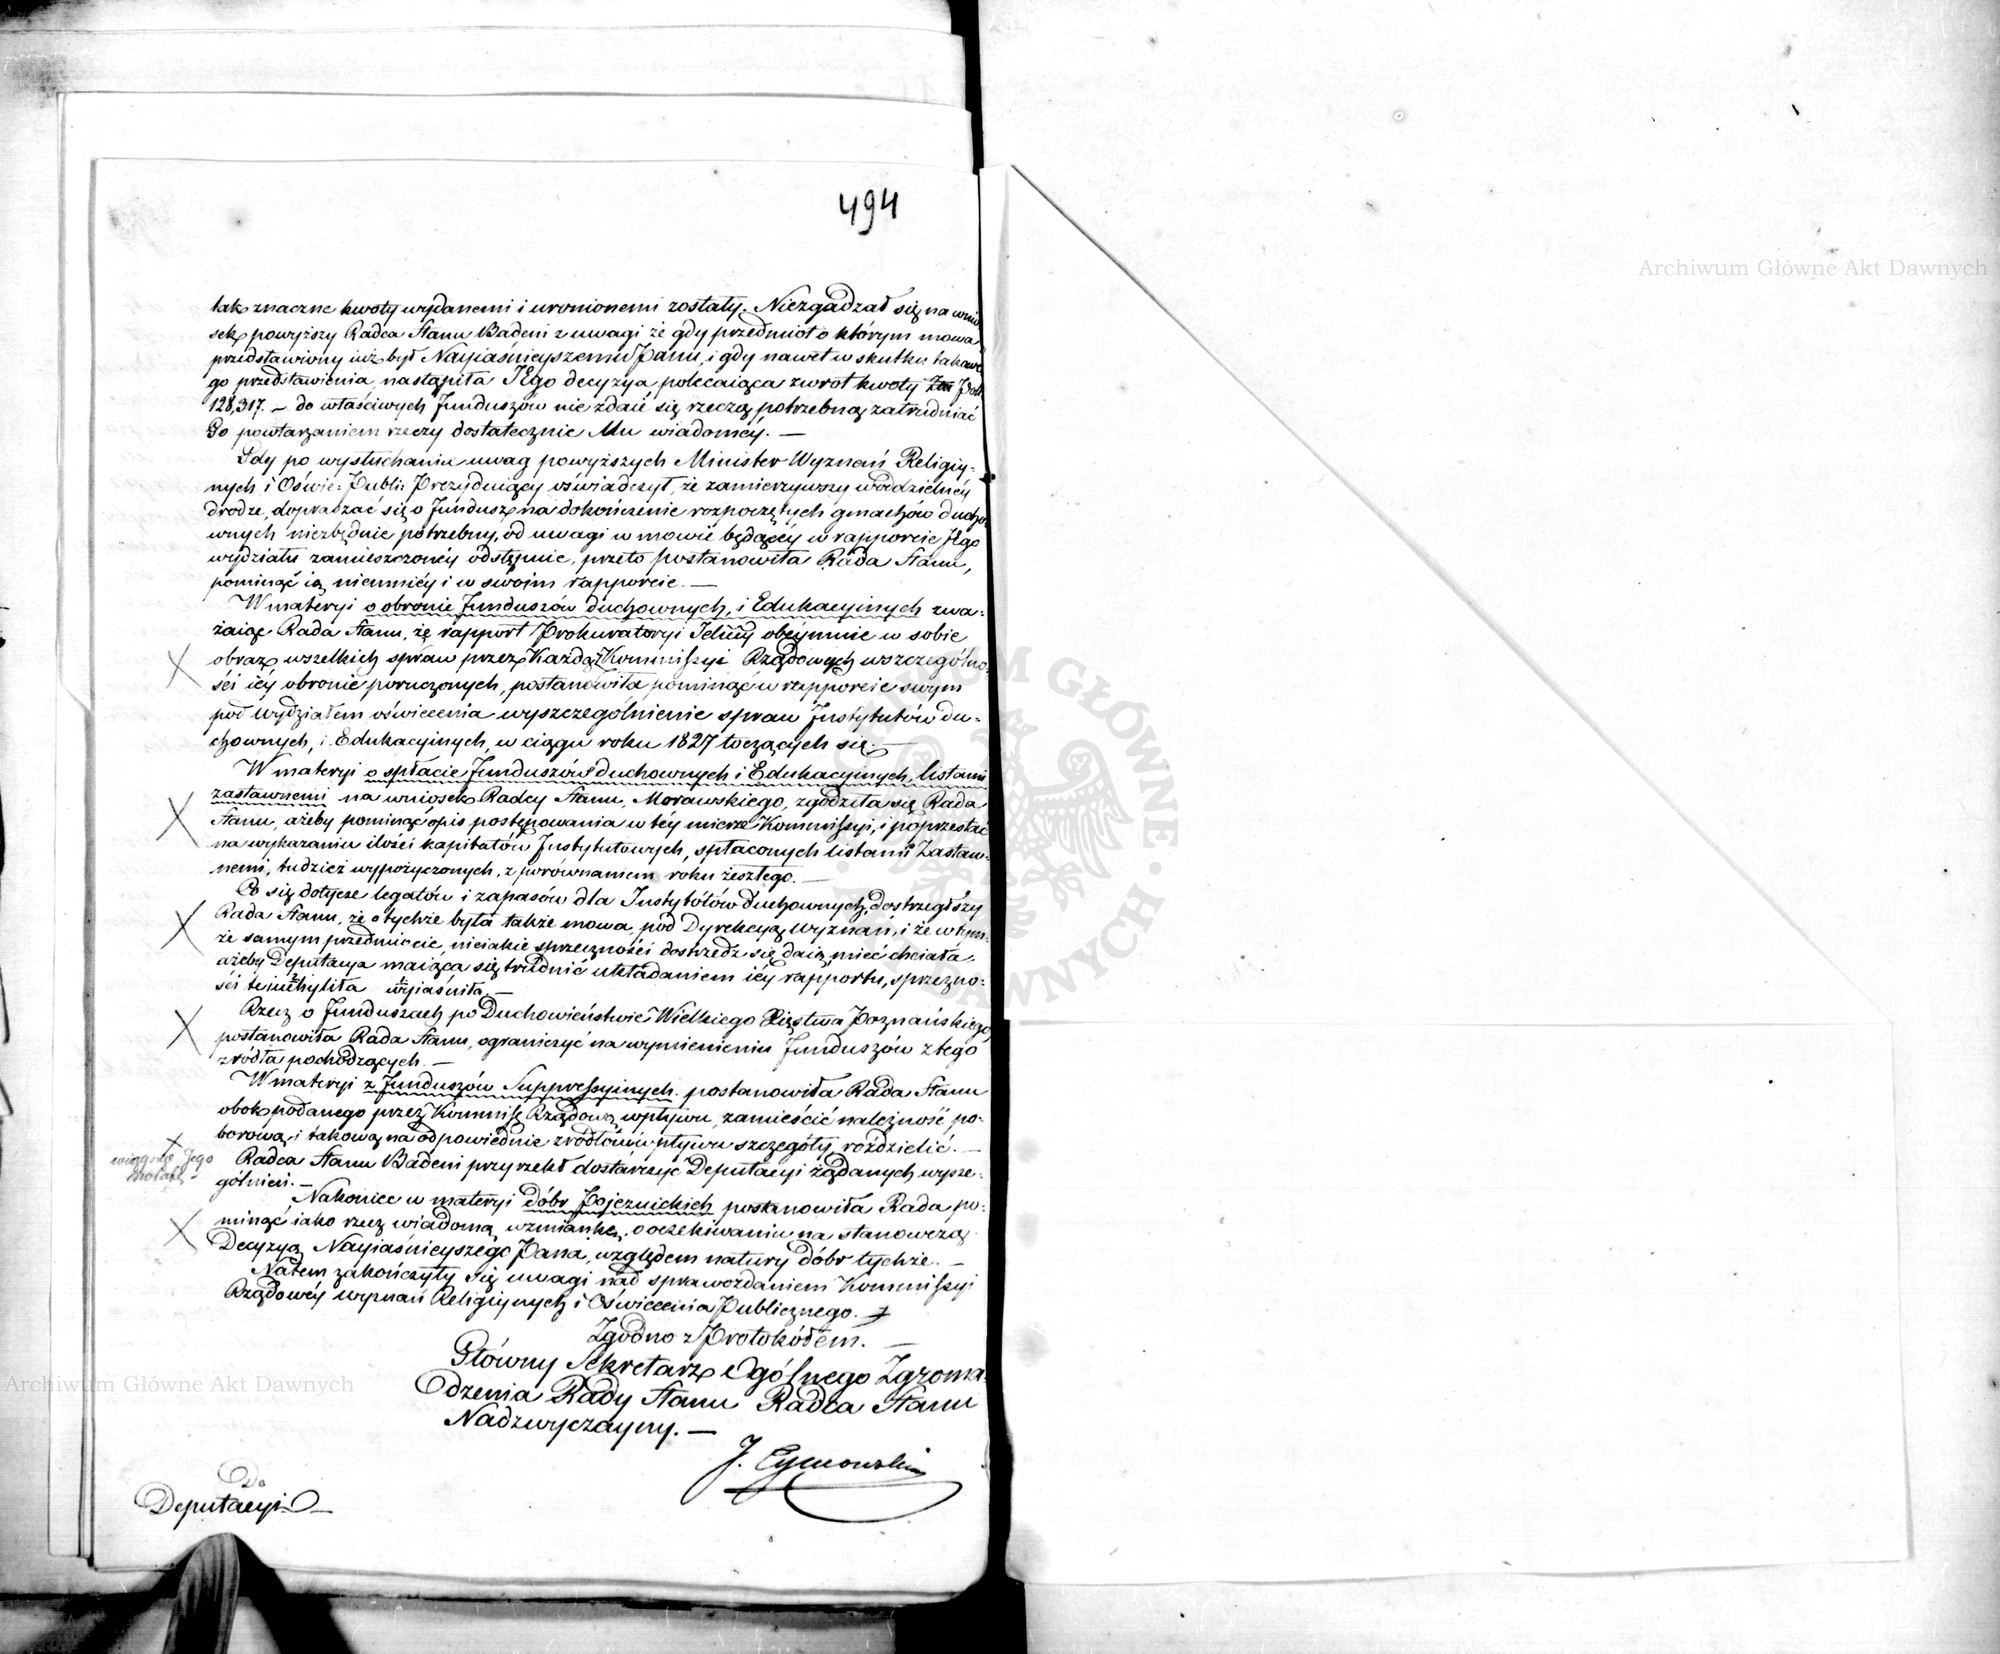 494
tak znaczne kwoty wydanemi i uronionemi zostały. Niezgadzał się na wnio
sek powyższy Radca Stanu Badeni z uwagi że gdy przedmiot o którym mowa
przedstawiony iuż był Nayiaśnieyszemu Panu, i gdy nawet w skutku takowe
go przedstawienia, nastąpiła JEgo decyzya polecaiąca zwrot kwoty Złł Pol
128,317. — do właściwych Funduszów nie zdaie się rzeczą potrzebną zatrudniać
Go powtarzaniem rzeczy dostatecznie Mu wiadoméy. —
Gdy po wysłuchaniu uwag powyższych Minister Wyznań Religiy-
nych i Oświe: Publi: Prezyduiący oświadczył, że zamierzywszy w oddzielnéy
drodze, dopraszać się o Fundusz na dokończenie rozpoczętych gmachów ducho
wnych niezbędnie potrzebny, od uwagi w mowie będącéy w rapporcie JEgo
wydziału zamieszczonéy odstępuie, przeto postanowiła Rada Stanu,
pominąć ią niemniéy i w swoim rapporcie. —
W materyi o obronie Funduszów duchownych, i Edukacyinych zwa-
żaiąc Rada Stanu, że rapport Prokuratoryi Jelnéy obeymuie w sobie
obraz wszelkich spraw przez Każdą z Kommissyi Rządowych wszczególno-
ści iéy obronie poruczonych, postanowiła pominąć w rapporcie swym
pod Wydziałem oświecenia wyszczególnienie spraw Instytutów du-
chownych, i Edukacyinych, w ciągu roku 1827 toczących się. —
W materyi o spłacie Funduszów duchownych i Edukacyinych, listami
zastawnemi na wniosek Radcy Stanu, Morawskiego, zgodziła się Rada
Stanu, ażeby pominąć opis postępowania w téy mierze Kommissyi, i poprzestać
na wykazaniu ilości kapitałów Instytutowych, spłaconych listami Zastaw-
nemi, tudzież wypożyczonych, z porównaniem roku zeszłego. —
Co się dotycze legatów i zapasów dla Instytutów duchownych, dostrzegłszy
Rada Stanu, że o tychże była także mowa, pod Dyrekcyą Wyznań, i że w tym-
że samym przedmiocie nieiakie sprzeczności dostrzedz się daią, mieć chciała,
ażeby Deputacya maiąca się trudnić układaniem iéy rapportu, sprzeczno-
ści te uchyliła wyiaśniła. —
Rzecz o Funduszach po Duchowieństwie Wielkiego Xięstwa Poznańskiego
postanowiła Rada Stanu, ograniczyć na wymienieniu Funduszów z tego
zródła pochodzących. —
W materyi z Funduszów Suppressyinych. postanowiła Rada Stanu
obok podanego przez Kommissę Rządową wpływu, zamieścić należność po-
borową, i takową na odpowiednie zródłom wpływu szczegóły, rozdzielić. —
Radca Stanu Badeni przyrzekł dostarczyć Deputacyi żądanych wyszcze-
gólnień. —
Nakoniec w materyi dóbr Pojezuickich postanowiła Rada po-
minąć iako rzecz wiadomą, wzmiankę, o oczekiwaniu na stanowczą
Decyzyą Nayiaśnieyszego Pana, względem natury dóbr tychże. —
Na tem zakończyły się uwagi nad sprawozdaniem Kommissyi
Rządowéy wyznań Religiynych i Oświecenia Publicznego. —
Zgodno z Protokółem. —
Główny Sekretarz Ogólnego Zgroma-
dzenia Rady Stanu Radca Stanu
Nadzwyczayny. —
Do
Deputacyi
Archiwum Główne Akt Dawnych
Archiwum Główne Akt Dawnych